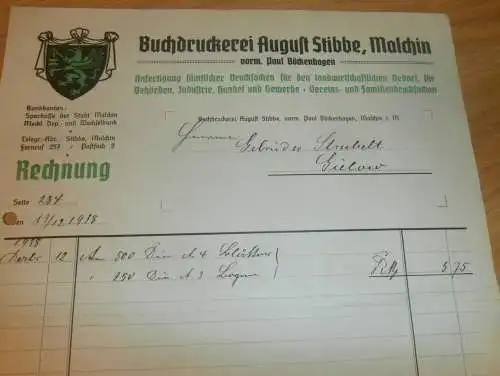 Buchdruckerei August Stibbe, Malchin
vorm. Paul Böckenhagen
Anfertigung sämtlicher Drucksachen für den landwirtschaftlichen Bedarf, für
Behörden, Industrie, Handel und Gewerbe · Vereins- und Familiendrucksachen
Bankkonten:
Sparkasse der Stadt Malchin
Meckl. Dep.- und Wechselbank
Telegr.-Adr.: Stibbe, Malchin
Fernruf 257 · Postfach 9
Rechnung
Seite 284
den 19/12.1938
Buchdruckerei August Stibbe, vorm. Paul Böckenhagen, Malchin i. M.
Gebrüder
Gielow
1938
12 An 500 Din A 4 Blätter
" 250 Din A 3 Bogen 5 75